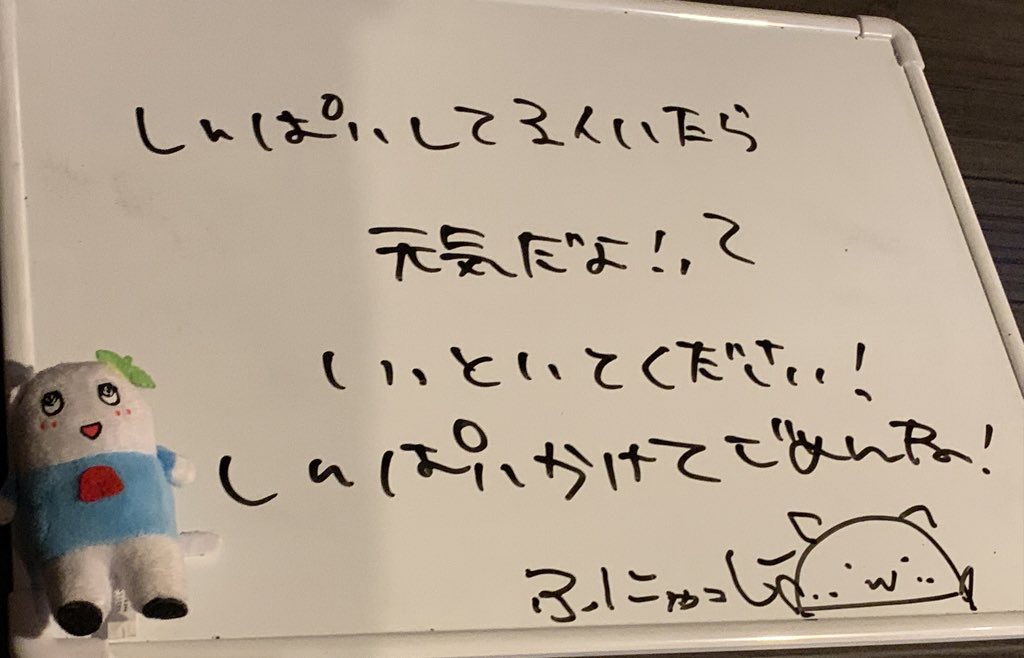 しんぱいしてる人いたら
元気だよ!って
いっといてください!
しんぱいかけてごめんね!
ふにゃっしー